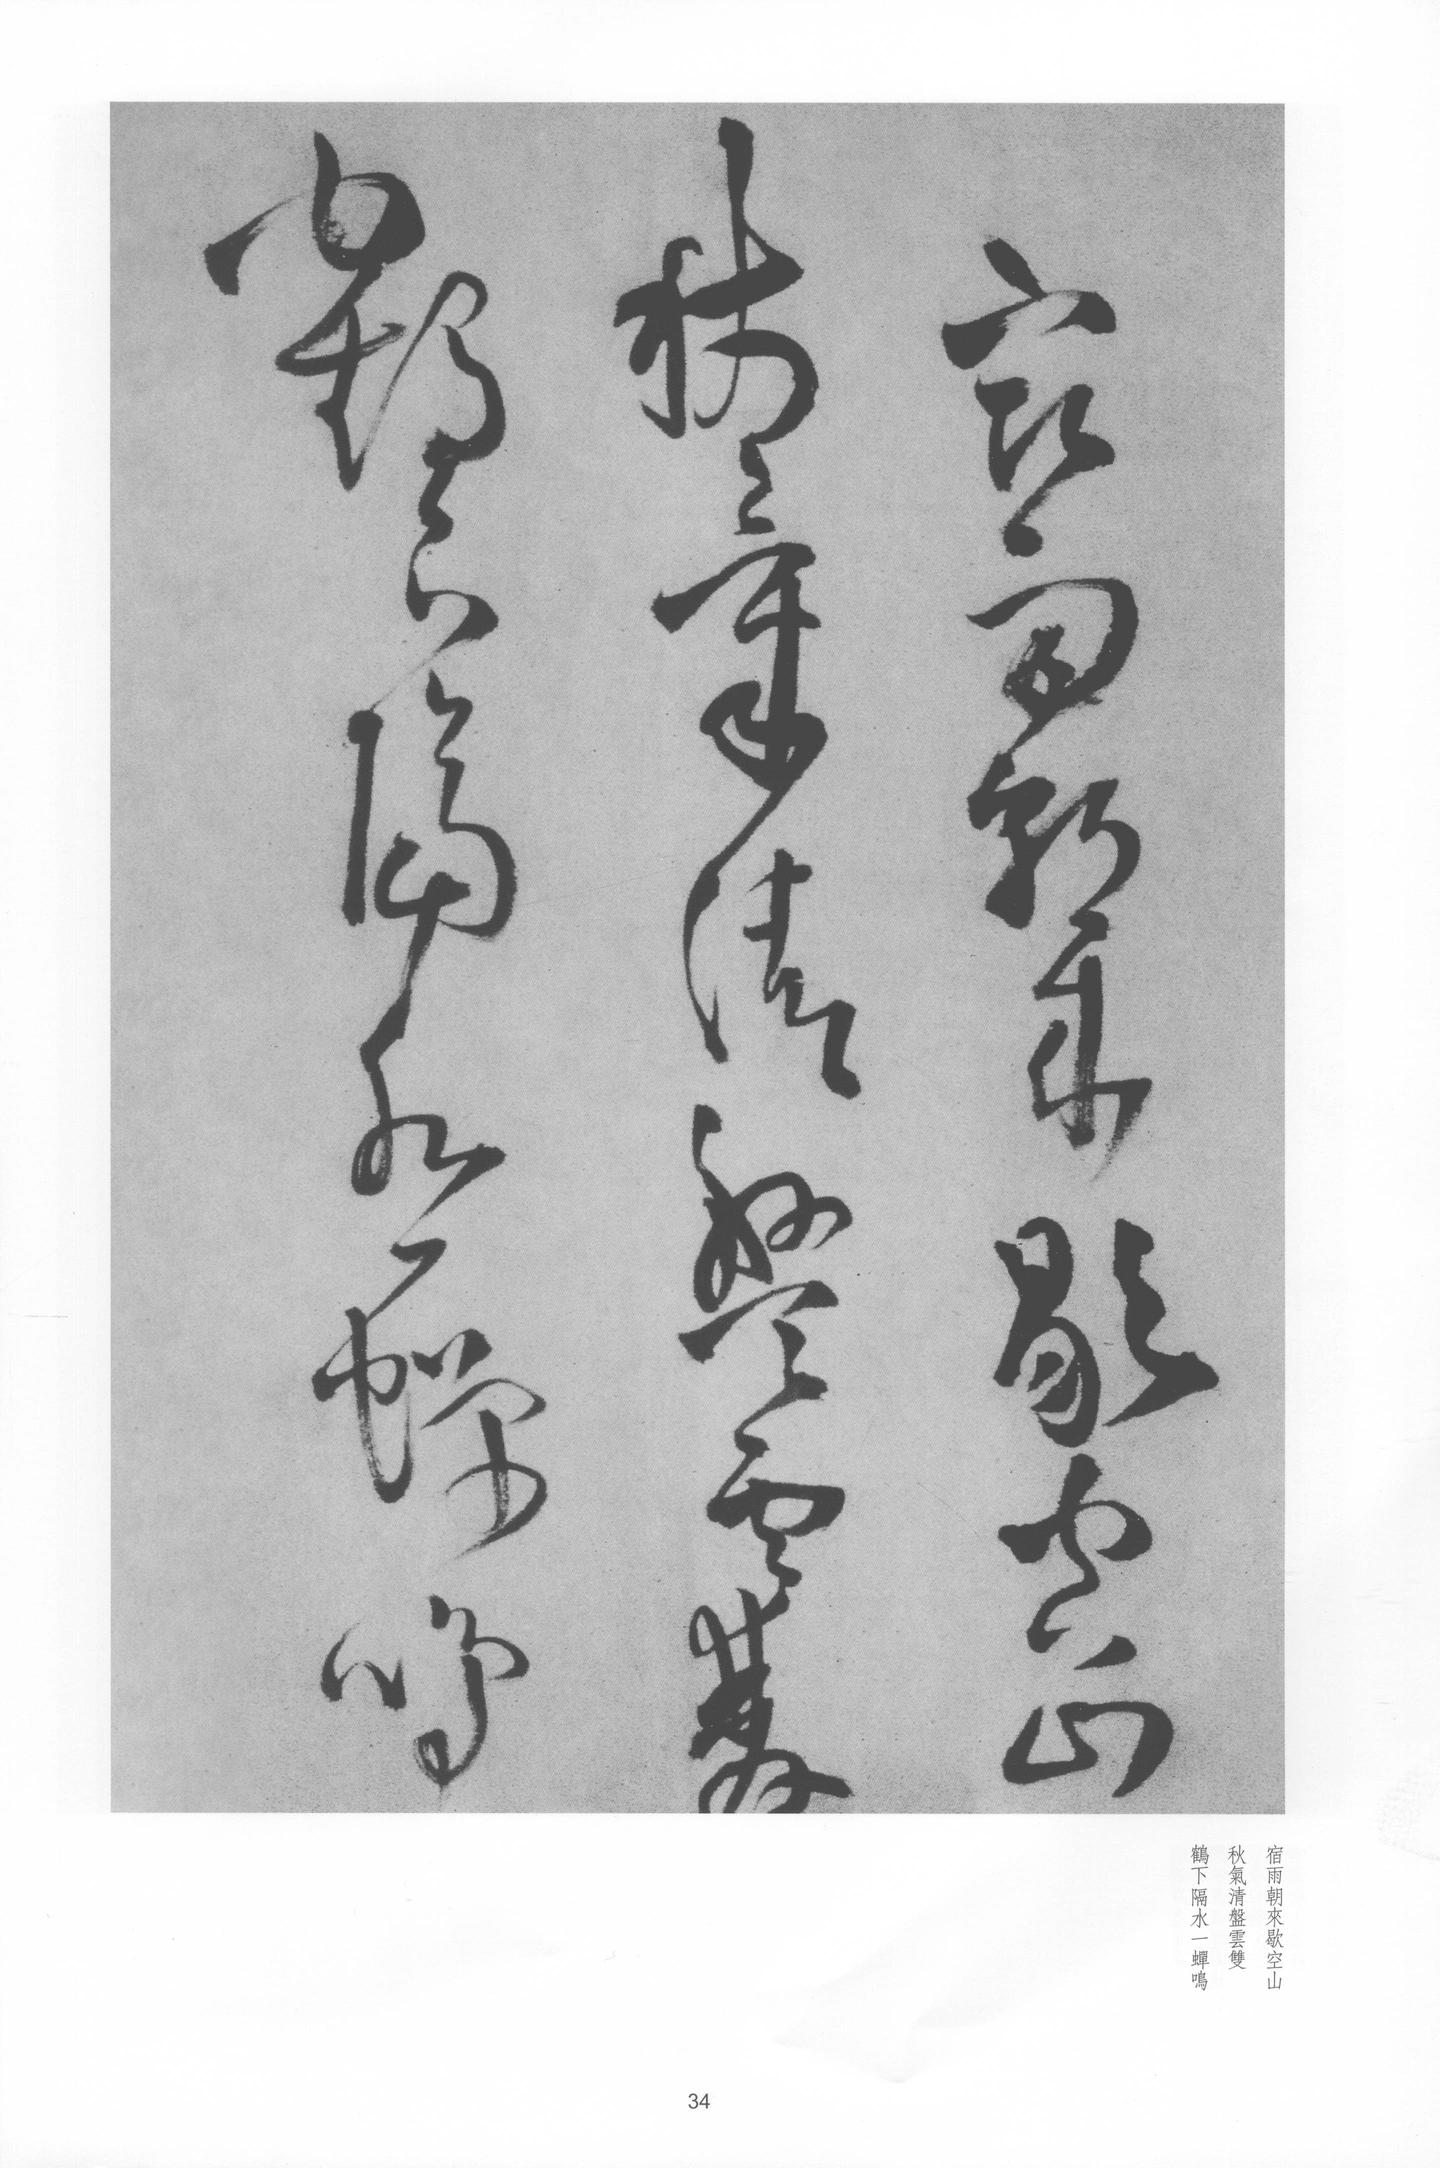 宿雨朝來歇空山
秋氣清盤雲雙
鶴下隔水一蟬鳴
宿雨朝來歇空山
秋氣清盤雲雙
鶴下隔水一蟬鳴
34